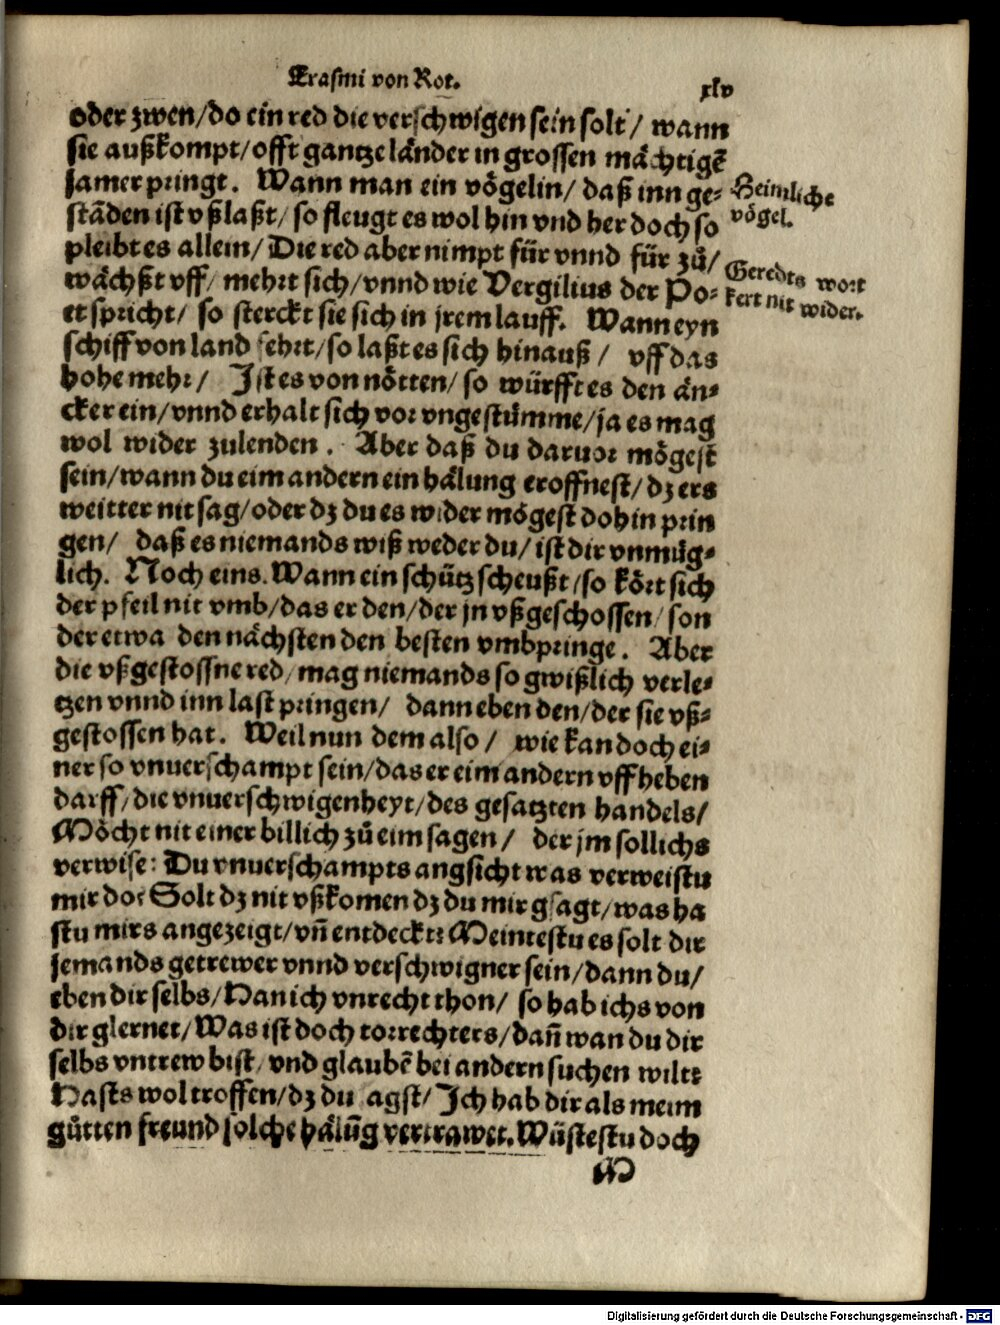 Erasmi von Rot.
xlv
oder zwen/do ein red die verschwigen sein solt/ wann
sie außkompt/offt gantze länder in grossen mächtigẽ
jamer pringt. Wann man ein vögelin/ daß inn ge-
stãden ist vßlaßt/ so fleugt es wol hin vnd her doch so
pleibt es allein/ Die red aber nimpt für vnnd für zů/
wächßt vff/ mehrt sich/vnnd wie Vergilius der Po-
et spricht/ so sterckt sie sich in jrem lauff. Wann eyn
schiff von land fehrt/so laßt es sich hinauß/ vff das
hohe mehr/ Jst es von nötten/ so würfft es den än-
cker ein/vnnd erhalt sich vor vngestümme/ja es mag
wol wider zulenden. Aber daß du daruor mögest
sein/wann du eim andern ein hälung eroffnest/dz ers
weitter nit sag/oder dz du es wider mögest dohin prin
gen/ daß es niemands wiß weder du/ist dir vnmüg-
lich. Noch eins. Wann ein schütz scheußt/so kört sich
der pfeil nit vmb/das er den/der jn vßgeschossen/son
der etwa den nächsten den besten vmbpringe. Aber
die vßgestossne red/mag niemands so gwißlich verle-
tzen vnnd inn last pringen/ dann eben den/der sie vß-
gestossen hat. Weil nun dem also/ wie kan doch ei-
ner so vnuerschampt sein/das er eim andern vffheben
darff/die vnuerschwigenheyt/des gesatzten handels/
Möcht nit einer billich zů eim sagen/ der jm sollichs
verwise: Du vnuerschampts angsicht was verweistu
mir do? Solt dz nit vßkomen dz du mir gsagt/was ha
stu mirs angezeigt/vñ entdeckt? Meintestu es solt dir
jemands getrewer vnnd verschwigner sein/dann du/
eben dir selbs/Han ich vnrecht thon/ so hab ichs von
dir glernet/Was ist doch torrechters/dañ wan du dir
selbs vntrew bist/vnd glaubẽ bei andern suchen wilt?
Hasts wol troffen/dz du sagst/Jch hab dir als meim
gůtten freund solche hälũg vertrawet. Wüstestu doch
M
Heimliche
vögel.
Geredts wort
kert nit wider.
Digitalisierung gefördert durch die Deutsche Forschungsgemeinschaft - DFG